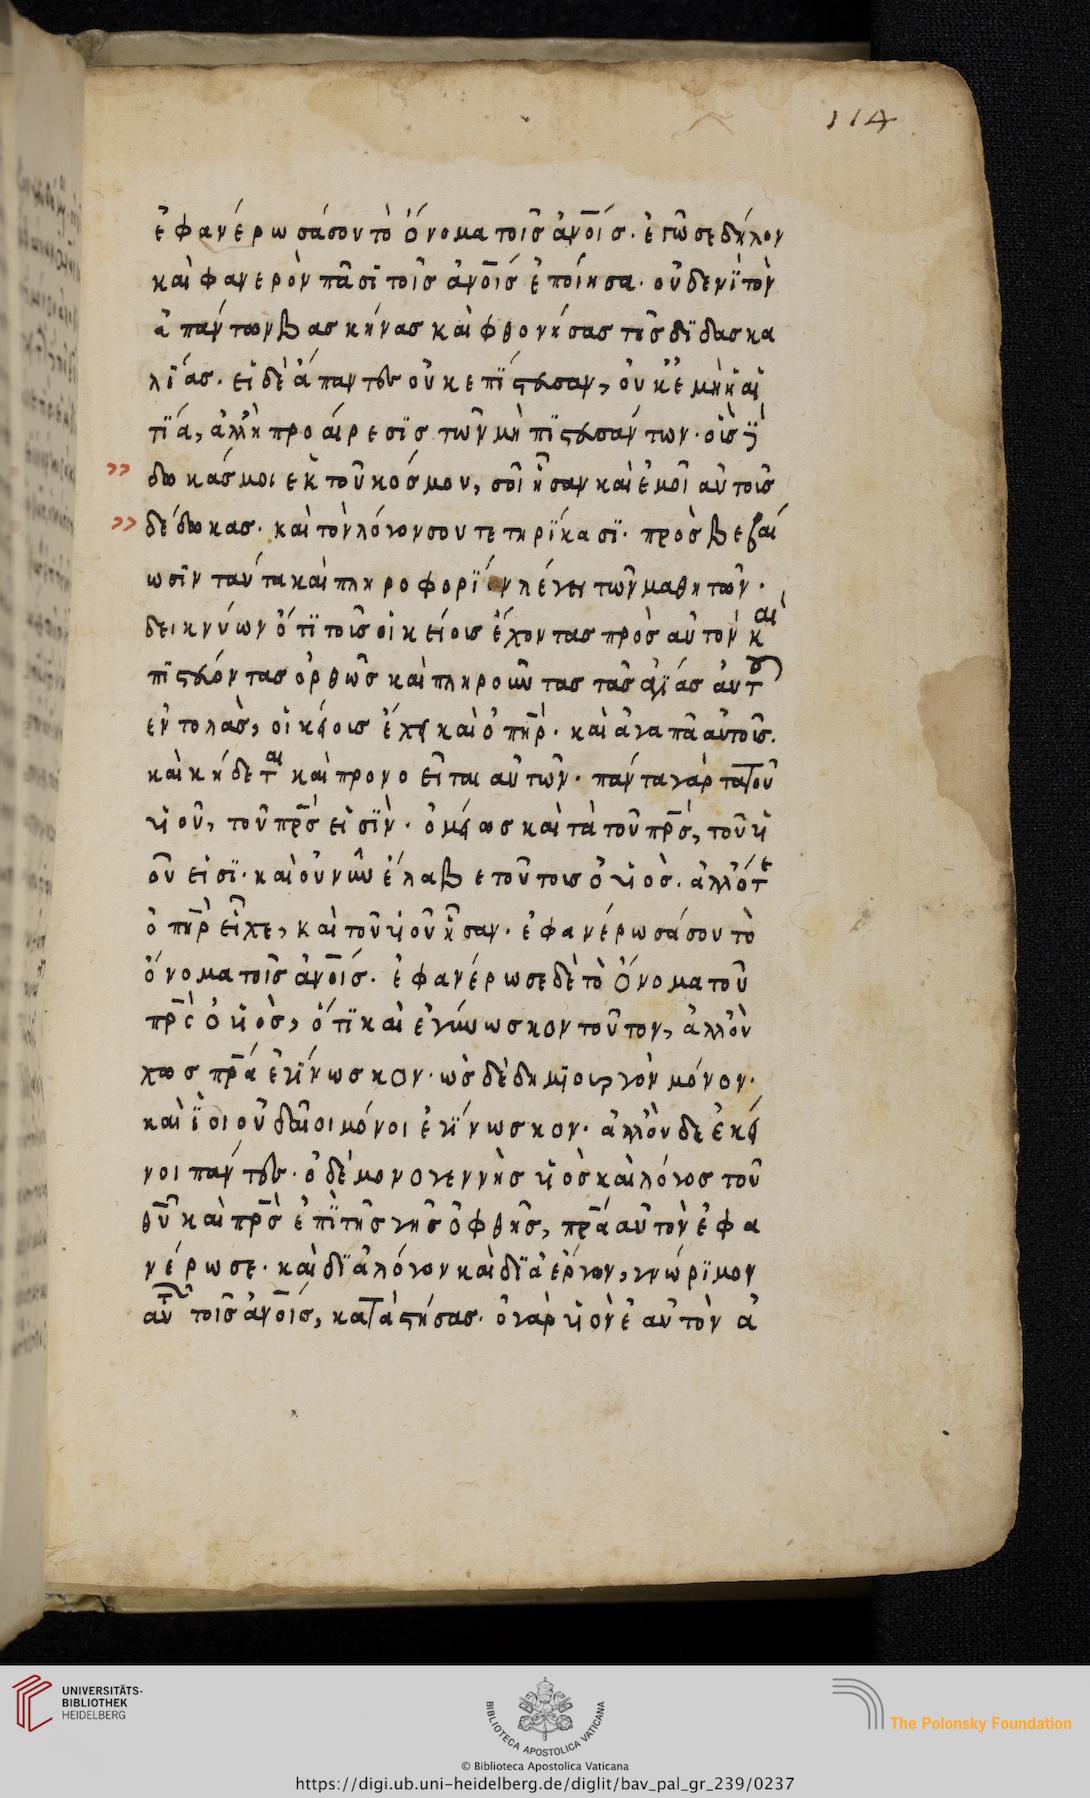 114
ἐφανέρωσά σου τὸ ὄνομα τοῖς ἀν̅οίς. ἐγὼ σε δήλον
καὶ φανερὸν πᾶσῖ τοῖς ἀν̅οίς ἐποίησα. οὐδενῒ τὸν
ἁπάντων βασκήνας καὶ φθονήσας τῆς δϊδασκα
λίας. εἰ δὲ ἅπαντες οὐκ ἐπίστευσαν, οὐκ ἐμὴ ἡ αἰ
τΐα, ἀλλ' ἡ προαίρεσϊς τῶν μὴ πϊστευσάντων. οἷς
δωκάς μοι ἐκ τοῦ κόσμου, σοῖ ἦσαν καὶ ἐμοῖ αὐτοῖς
δέδωκας. καὶ τὸν λόγον σου τετηρϊκασϊ. πρὸς βεβαί
ωσῖν ταύτα καὶ πληροφορΐαν λέγει τῶν μαθητῶν.
δεικνύων ὅτϊ τοῖς οἰκείοις ἔχοντας πρὸς αὐτόν καὶ
πϊστεύοντας ὀρθῶς καὶ πληροῦντας τὰς ἁγΐας αὐτοῦ
ἐντολὰς, οἰκείοις ἔχει καὶ ὁ πη̅ρ. καὶ ἀγαπᾶ αὐτοῖς.
καὶ κήδεται καὶ προνοεῖται αὐτῶν. πάντα γὰρ τα τοῦ
υἱοῦ, τοῦ πρ̅ς εἰσῒν. ὁμοίως καὶ τὰ τοῦ πρ̅ς, τοῦ υἱ
οῦ εἰσϊ. καὶ οὐ νῦν ἔλαβε τοῦτοις ὁ υἱὸς. ἀλλ' ὅτε
ὁ πη̅ρ εἶχε, καὶ τοῦ υἱοῦ ἦσαν. ἐφανέρωσά σου τὸ
ὄνομα τοῖς ἀν̅οίς. ἐφανέρωσε δὲ τὸ ὄνομα τοῦ
πρ̅ς ὁ υἱὸς, ὅτϊ καὶ ἐγίνωσκον τοῦτον, ἀλλ' οὐ
χως πρ̅α ἐγΐνωσκον. ὡς δὲ δημϊουργὸν μόνον.
καὶ ϊοιουδαῖοι μόνοι ἐγΐνωσκον. ἀλλ' ὸν δε ἐκεί
νοι πάντες. ὁ δὲ μονογεννὴς υἱὸς καὶ λόγος τοῦ
θυ̅ καὶ πρ̅ς ἐπῒ τῆς γῆς ὀφθῆς, πρ̅α αὐτὸν ἐφα
νέρωσε. καὶ δϊὰ λόγον καὶ δϊὰ ἔργων, γνώρϊμον
αὐτὸν τοῖς ἀν̅οίς, κατὰστήσας. ὁ γὰρ υἱὸν ἑαυτὸν ἀ
UNIVERSITÄTS-
BIBLIOTHEK
HEIDELBERG
BIBLIOTECA APOSTOLICA VATICANA
The Polonsky Foundation
© Biblioteca Apostolica Vaticana
https://digi.ub.uni-heidelberg.de/diglit/bav_pal_gr_239/0237